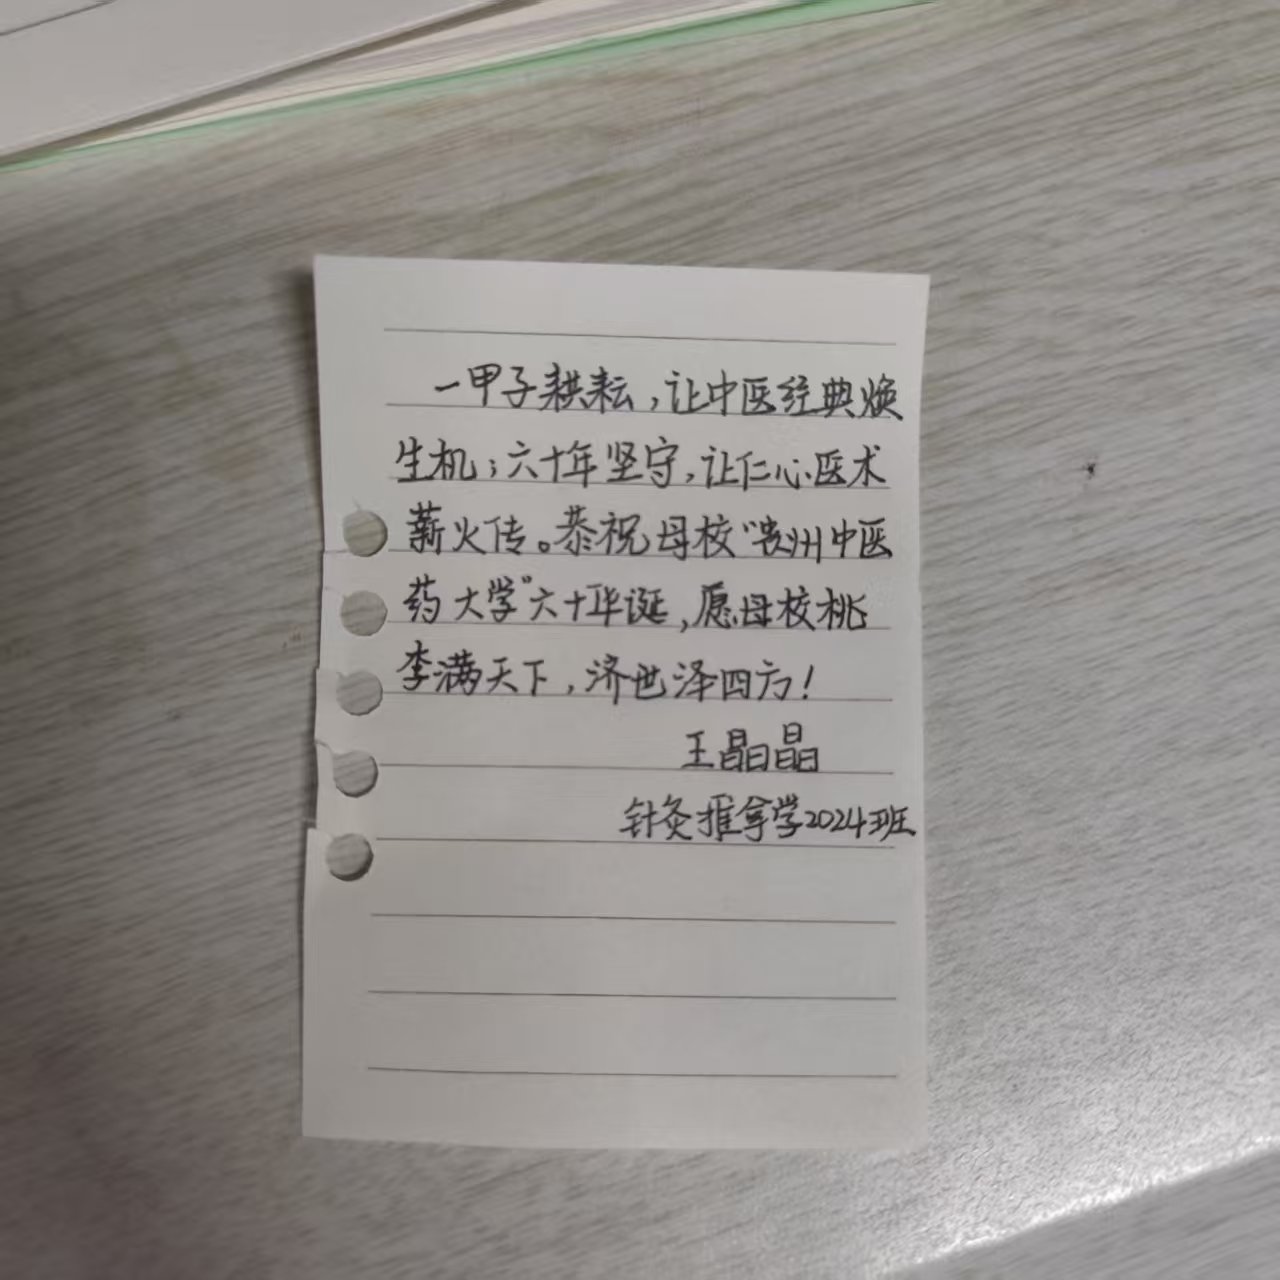 一甲子耕耘,让中医经典焕
生机;六十年坚守,让仁心医术
薪火传。恭祝母校“贵州中医
药大学”六十华诞,愿母校桃
李满天下,济世泽四方!
王晶晶
针灸推拿学2024班